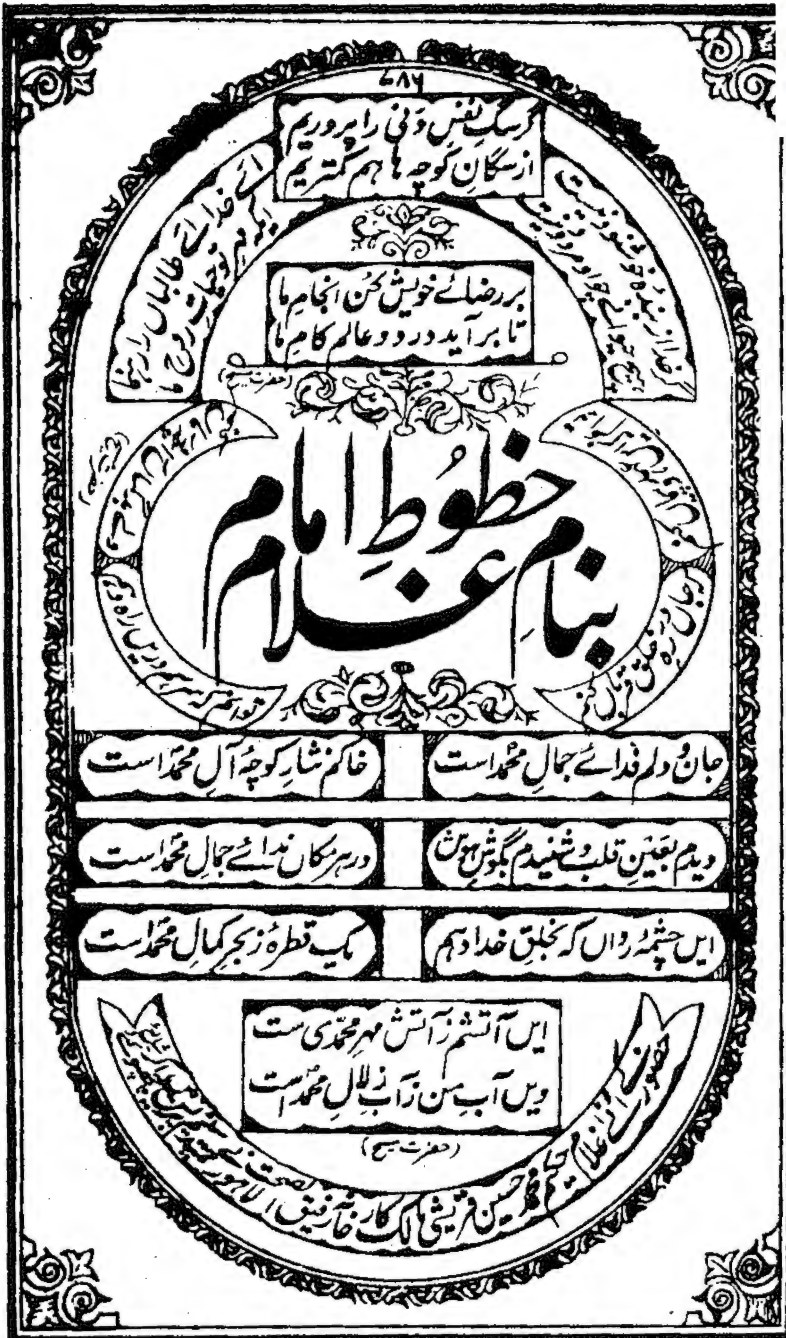 ۷۸۶
گر سگِ نفسِ دنی را پروریم
از سگانِ کوچہ ہا ہم کمتریم
اے خدا اے طالباں را رہنما
ایکہ مہرِ تو حیاتِ روحِ ما
گر خدا از بندۂ خوشنود نیست
ہیچ حیوانے چو او مردود نیست
بر رضائے خویش کُن انجامِ ما
تا برآید در دو عالم کامِ ما
(حضرت مسیح)
خطوطِ امام
بنامِ غلام
جان و دلم فدائے جمالِ محمدؐ است
خاکم نثارِ کوچۂ آلِ محمدؐ است
دیدم بعینِ قلب و شنیدم بگوشِ ہوش
در ہر مکاں ندائے جمالِ محمدؐ است
ایں چشمۂ رواں کہ بخلقِ خدا دہم
یک قطرۂ زبحرِ کمالِ محمدؐ است
ایں آتشم ز آتشِ مہرِ محمدؐی ست
ویں آبِ من ز آبِ زلالِ محمدؐ است
(حضرت مسیح)
حکیم محمد حسین قریشی مالک کارخانہ رفیق